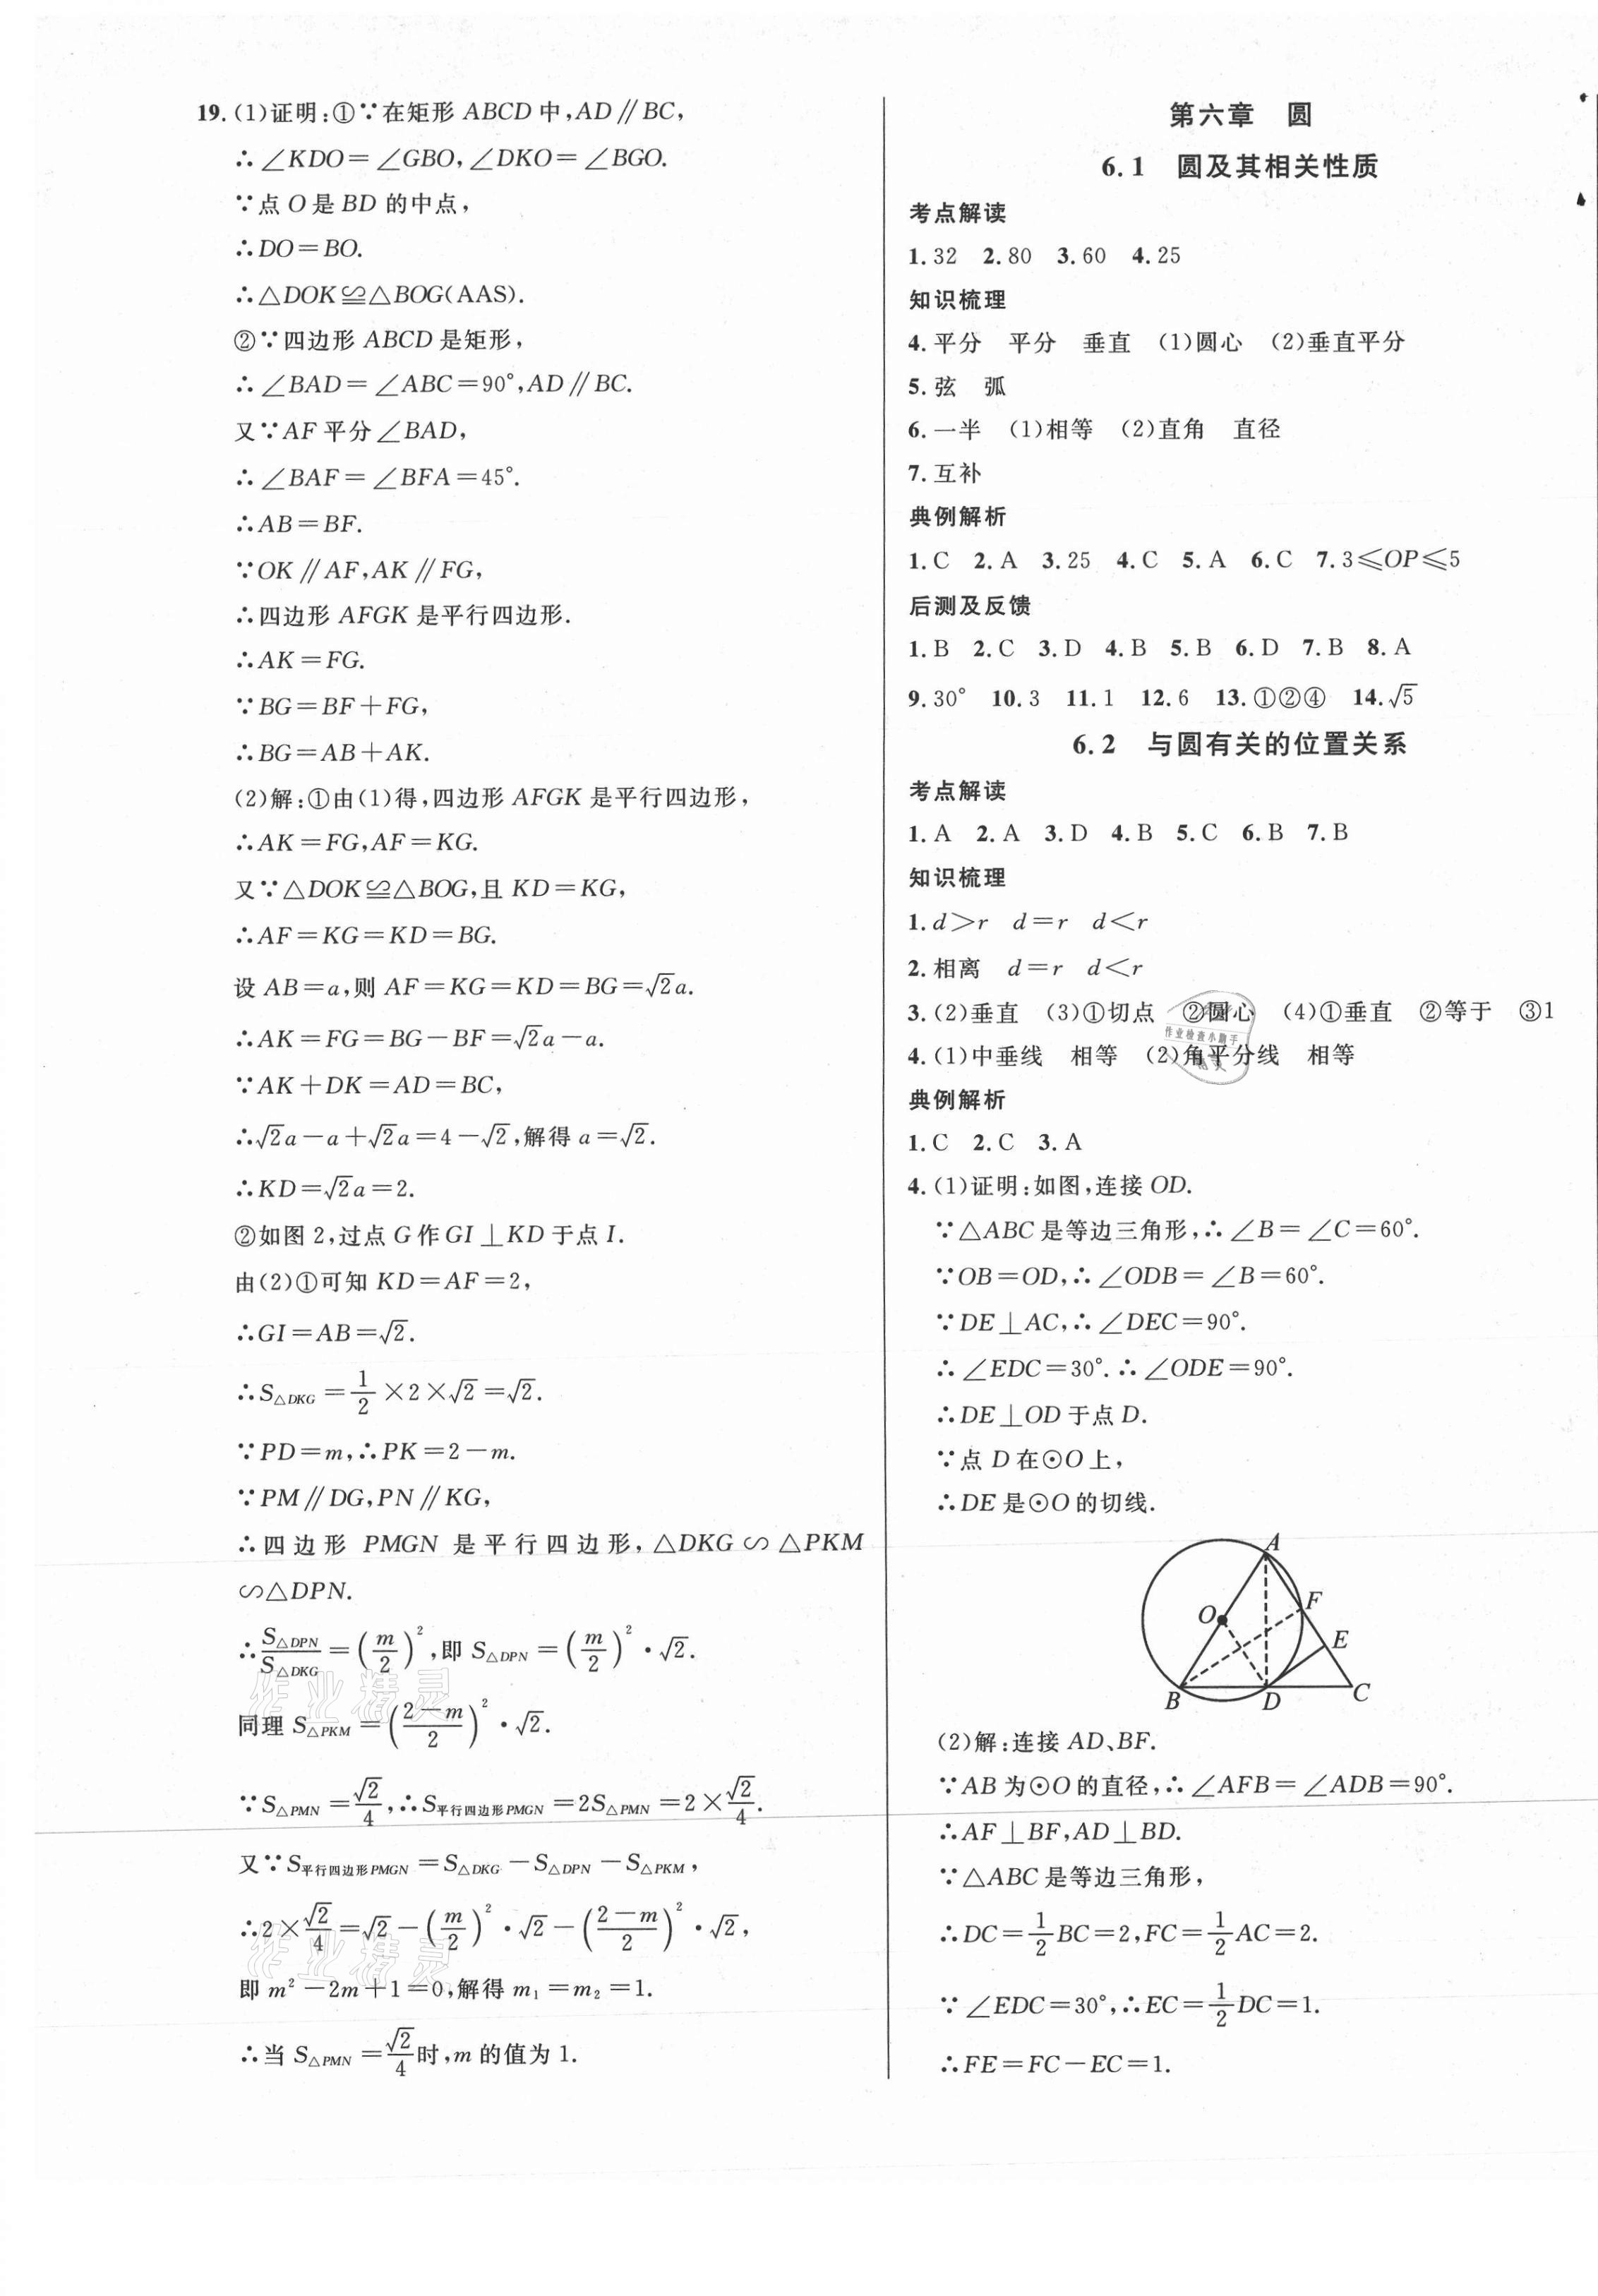 19.(1)证明:①∵在矩形ABCD中,AD∥BC,
∴∠KDO=∠GBO,∠DKO=∠BGO.
∵点O是BD的中点,
∴DO=BO.
∴△DOK≌△BOG(AAS).
②∵四边形ABCD是矩形,
∴∠BAD=∠ABC=90°,AD∥BC.
又∵AF平分∠BAD,
∴∠BAF=∠BFA=45°.
∴AB=BF.
∵OK∥AF,AK∥FG,
∴四边形AFGK是平行四边形.
∴AK=FG.
∵BG=BF+FG,
∴BG=AB+AK.
(2)解:①由(1)得,四边形AFGK是平行四边形,
∴AK=FG,AF=KG.
又∵△DOK≌△BOG,且KD=KG,
∴AF=KG=KD=BG.
设AB=a,则AF=KG=KD=BG=√2a.
∴AK=FG=BG-BF=√2a-a.
∵AK+DK=AD=BC,
∴√2a-a+√2a=4-√2,解得a=√2.
∴KD=√2a=2.
②如图2,过点G作GI⊥KD于点I.
由(2)①可知KD=AF=2,
∴GI=AB=√2.
∴S△DKG=1/2×2×√2=√2.
∵PD=m,∴PK=2-m.
∵PM∥DG,PN∥KG,
∴四边形PMGN是平行四边形,△DKG∽△PKM
∽△DPN.
∴S△DPN/S△DKG=(m/2)²,即S△DPN=(m/2)²·√2.
同理S△PKM=((2-m)/2)²·√2.
∵S△PMN=√2/4,∴S平行四边形PMGN=2S△PMN=2×√2/4.
又∵S平行四边形PMGN=S△DKG-S△DPN-S△PKM,
∴2×√2/4=√2-(m/2)²·√2-((2-m)/2)²·√2,
即m²-2m+1=0,解得m₁=m₂=1.
∴当S△PMN=√2/4时,m的值为1.
第六章 圆
6.1 圆及其相关性质
考点解读
1.32 2.80 3.60 4.25
知识梳理
4.平分 平分 垂直 (1)圆心 (2)垂直平分
5.弦 弧
6.一半 (1)相等 (2)直角 直径
7.互补
典例解析
1.C 2.A 3.25 4.C 5.A 6.C 7.3≤OP≤5
后测及反馈
1.B 2.C 3.D 4.B 5.B 6.D 7.B 8.A
9.30° 10.3 11.1 12.6 13.①②④ 14.√5
6.2 与圆有关的位置关系
考点解读
1.A 2.A 3.D 4.B 5.C 6.B 7.B
知识梳理
1.d>r d=r d<r
2.相离 d=r d<r
3.(2)垂直 (3)①切点 ②圆心 (4)①垂直 ②等于 ③1
作业检查小助手
4.(1)中垂线 相等 (2)角平分线 相等
典例解析
1.C 2.C 3.A
4.(1)证明:如图,连接OD.
∵△ABC是等边三角形,∴∠B=∠C=60°.
∵OB=OD,∴∠ODB=∠B=60°.
∵DE⊥AC,∴∠DEC=90°.
∴∠EDC=30°.∴∠ODE=90°.
∴DE⊥OD于点D.
∵点D在⊙O上,
∴DE是⊙O的切线.
A
O
F
E
B
D
C
(2)解:连接AD、BF.
∵AB为⊙O的直径,∴∠AFB=∠ADB=90°.
∴AF⊥BF,AD⊥BD.
∵△ABC是等边三角形,
∴DC=1/2BC=2,FC=1/2AC=2.
∵∠EDC=30°,∴EC=1/2DC=1.
∴FE=FC-EC=1.
作业精灵
作业精灵